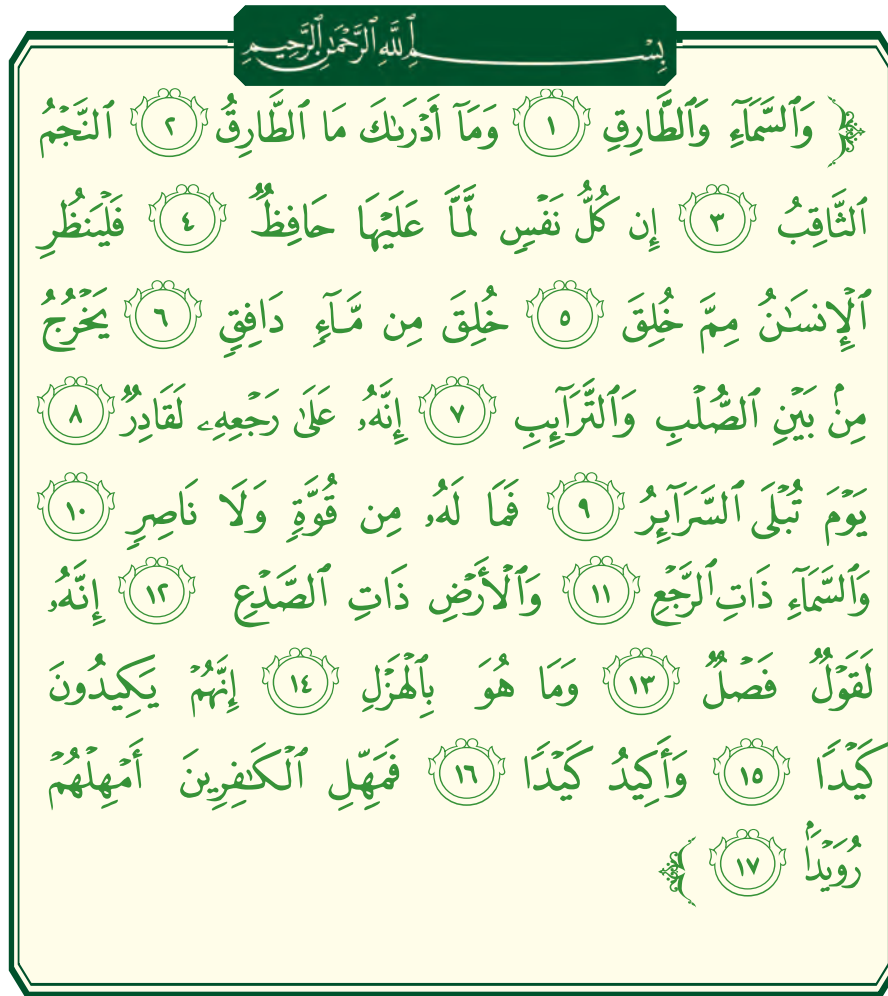 بِسْمِ ٱللَّهِ ٱلرَّحْمَٰنِ ٱلرَّحِيمِ
﴿ وَٱلسَّمَآءِ وَٱلطَّارِقِ ١ وَمَآ أَدۡرَىٰكَ مَا ٱلطَّارِقُ ٢ ٱلنَّجۡمُ
ٱلثَّاقِبُ ٣ إِن كُلُّ نَفۡسٖ لَّمَّا عَلَيۡهَا حَافِظٞ ٤ فَلۡيَنظُرِ
ٱلۡإِنسَٰنُ مِمَّ خُلِقَ ٥ خُلِقَ مِن مَّآءٖ دَافِقٖ ٦ يَخۡرُجُ
مِنۢ بَيۡنِ ٱلصُّلۡبِ وَٱلتَّرَآئِبِ ٧ إِنَّهُۥ عَلَىٰ رَجۡعِهِۦ لَقَادِرٞ ٨
يَوۡمَ تُبۡلَى ٱلسَّرَآئِرُ ٩ فَمَا لَهُۥ مِن قُوَّةٖ وَلَا نَاصِرٖ ١٠
وَٱلسَّمَآءِ ذَاتِ ٱلرَّجۡعِ ١١ وَٱلۡأَرۡضِ ذَاتِ ٱلصَّدۡعِ ١٢ إِنَّهُۥ
لَقَوۡلٞ فَصۡلٞ ١٣ وَمَا هُوَ بِٱلۡهَزۡلِ ١٤ إِنَّهُمۡ يَكِيدُونَ
كَيۡدٗا ١٥ وَأَكِيدُ كَيۡدٗا ١٦ فَمَهِّلِ ٱلۡكَٰفِرِينَ أَمۡهِلۡهُمۡ
رُوَيۡدَۢا ١٧ ﴾